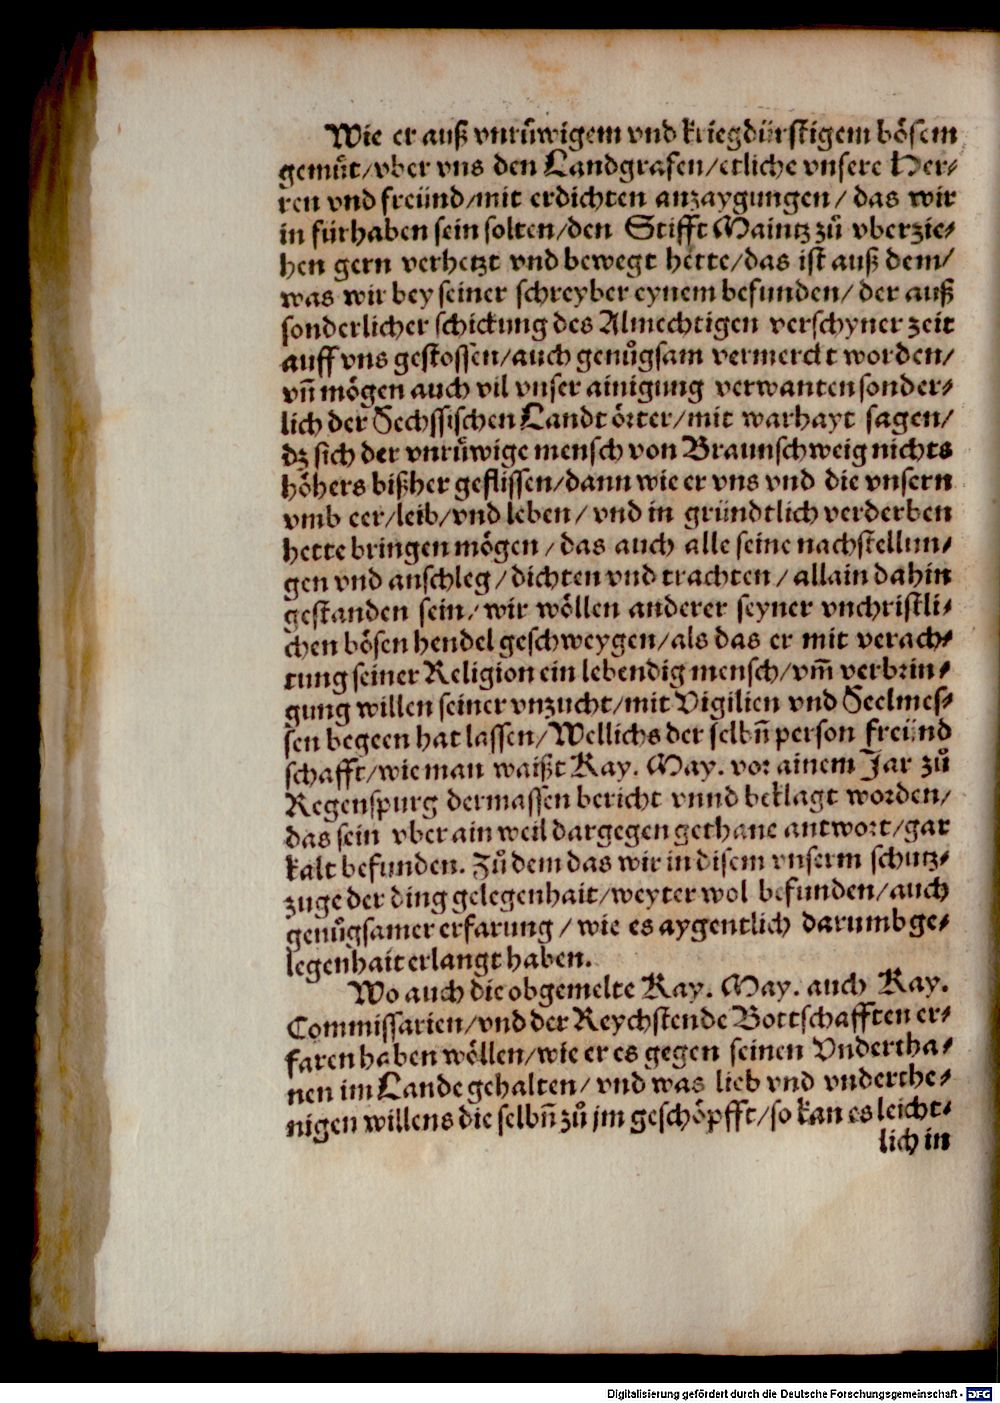 Wie er auß vnrůwigem vnd kriegdürstigem bösem
gemůt/vber vns den Landgrafen/etliche vnsere Her-
ren vnd freünd/mit erdichten anzaygungen/ das wir
in fürhaben sein solten/den Stifft Maintz zů vberzie-
hen gern verhetzt vnd bewegt hette/das ist auß dem/
was wir bey seiner schreyber eynem befunden/ der auß
sonderlicher schickung des Almechtigen verschyner zeit
auff vns gestossen/auch genůgsam vermerckt worden/
vñ mögen auch vil vnser ainigung verwanten sonder-
lich der Sechssischen Landt örter/mit warhayt sagen/
dz sich der vnrůwige mensch von Braunschweig nichts
höhers bißher geflissen/dann wie er vns vnd die vnsern
vmb eer/leib/vnd leben/ vnd in gründtlich verderben
hette bringen mögen/das auch alle seine nachstellun-
gen vnd anschleg/dichten vnd trachten/allain dahin
gestanden sein/wir wöllen anderer seyner vnchristli-
chen bösen hendel geschweygen/als das er mit verach-
tung seiner Religion ein lebendig mensch/vm̃ verbrin-
gung willen seiner vnzucht/mit Vigilien vnd Seelmes-
sen begeen hat lassen/Wellichs der selbñ person freünd
schafft/wie man waißt Kay. May. vor ainem Jar zů
Regenspurg dermassen bericht vnnd beklagt worden/
das sein vber ain weil dargegen gethane antwort/gar
kalt befunden. Zů dem das wir in disem vnserm schutz-
zuge der ding gelegenhait/weyter wol befunden/auch
genůgsamer erfarung/wie es aygentlich darumb ge-
legenhait erlangt haben.
Wo auch die obgemelte Kay. May. auch Kay.
Commissarien/vnd der Reychstende Bottschafften er-
faren haben wöllen/wie er es gegen seinen Vndertha-
nen im Lande gehalten/vnd was lieb vnd vnderthe-
nigen willens die selbñ zů jm geschöpfft/so kan es leicht-
lich in
Digitalisierung gefördert durch die Deutsche Forschungsgemeinschaft - DFG